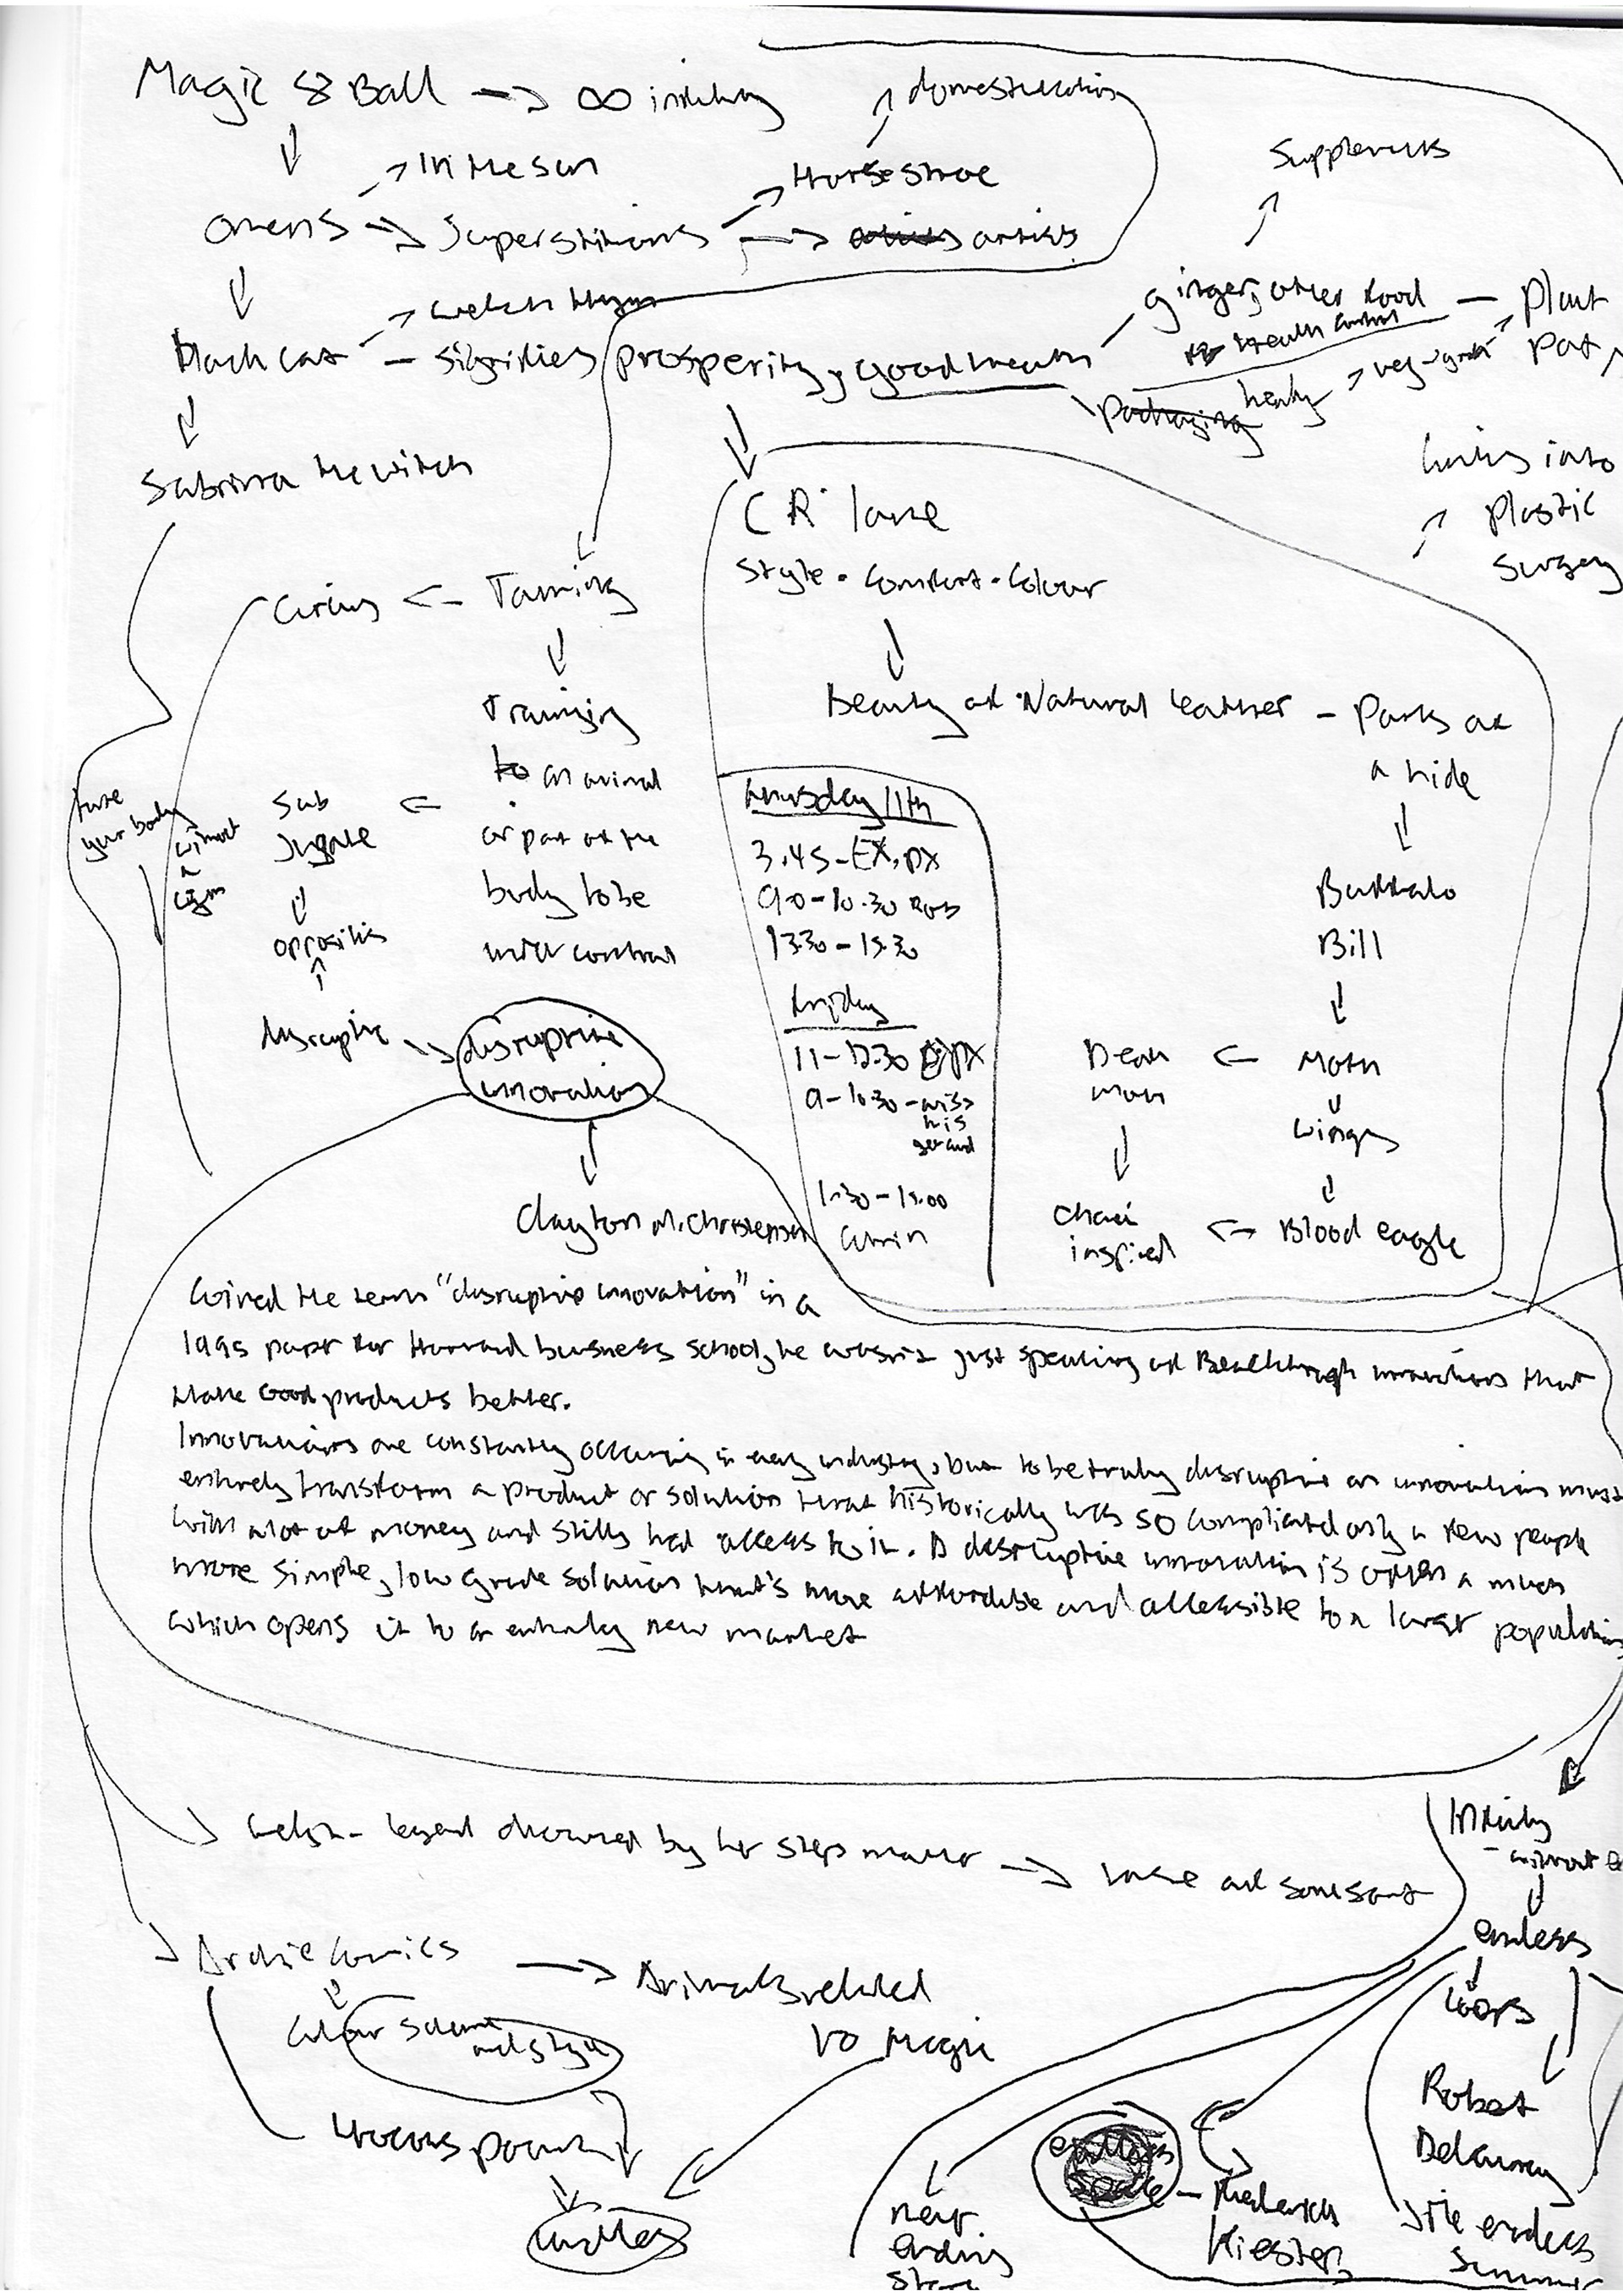 Magic 8 Ball → ∞ infinity
domestication
Supplements
In the sun
Horse shoe
omens → Superstitions → artists
welsh Hymn
ginger, other food — plant
Health control
pot
black cat — signifies prosperity, good health
healy → veg-
packaging
Sabrina the witch
looking into
plastic
surgery
CR lane
Style · Comfort · Colour
Circus ← Taming
Beauty of Natural leather — Parts of
a hide
Training
to an animal
or part of the
body to be
under control
Sub
Jugate
opposities
disruptive → disruptive
innovation
tune
your body
without
a
gym
thursday 11th
3.45 - EX, DX
9.0 - 10.30
13.30 - 15.30
friday
11 - 12.30 DX
9 - 10.30 - miss
this
get
1.30 - 15.00
Buffalo
Bill
Death
moth
← Moth
wings
chair
inspired
← Blood eagle
Clayton M. Christensen
Coined the term "disruptive innovation" in a
1995 paper for Harvard business school, he wasn't just speaking of Breakthrough innovations that
Make Good products better.
Innovations are constantly occuring in every industry, but to be truly disruptive an innovation must
entirely transform a product or solution that historically was so complicated only a few people
with alot of money and skills had access to it. A disruptive innovation is often a much
more simple, low grade solution that's more affordable and accessible to a larger population
which opens it to an entirely new market
legend by her step mother →
Infinity
- without
endless
loops
Archie Comics → Animals related
to Magic
Colour scheme
and style
Hocus pocus
Robert
Delaunay
endless
space — Frederick
Kiesler
never
ending
story
The endless
summer